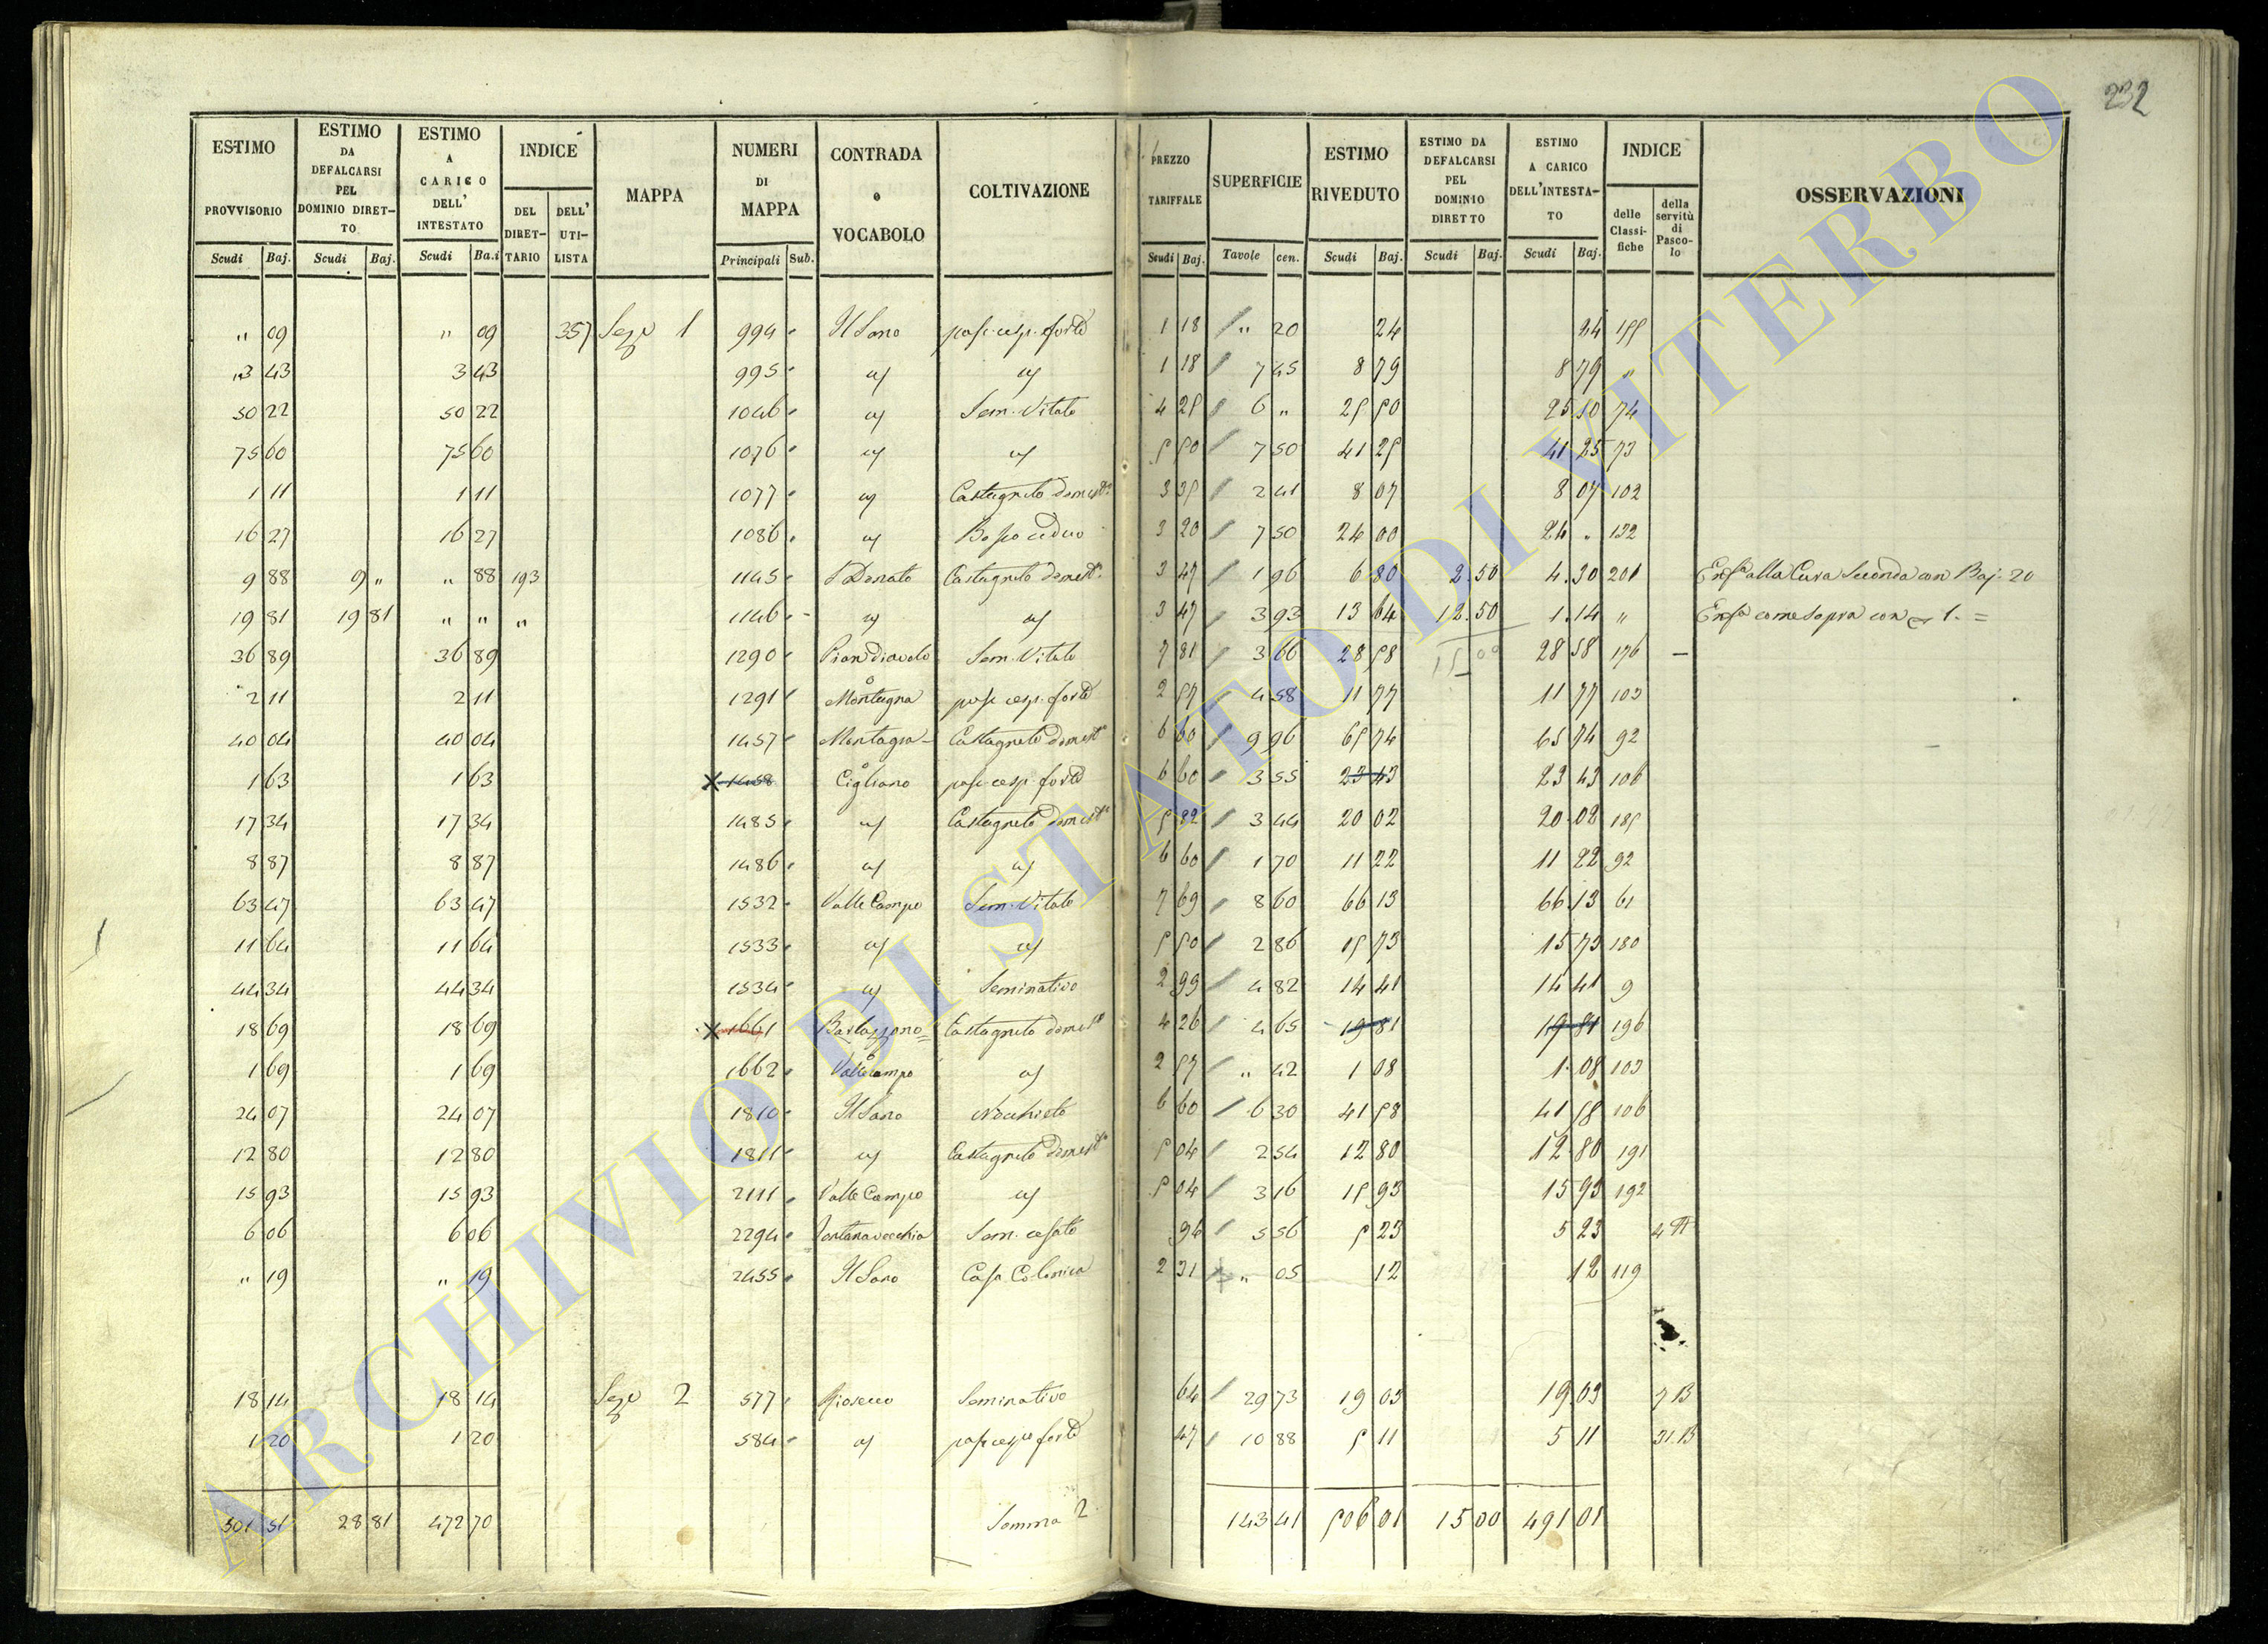 232
ESTIMO PROVVISORIO Scudi Baj. | ESTIMO DA DEFALCARSI PEL DOMINIO DIRETTO Scudi Baj. | ESTIMO A CARICO DELL' INTESTATO Scudi Ba.i | INDICE DEL DIRETTARIO DELL' UTILISTA | MAPPA | NUMERI DI MAPPA Principali Sub. | CONTRADA o VOCABOLO | COLTIVAZIONE | PREZZO TARIFFALE Scudi Baj. | SUPERFICIE Tavole cen. | ESTIMO RIVEDUTO Scudi Baj. | ESTIMO DA DEFALCARSI PEL DOMINIO DIRETTO Scudi Baj. | ESTIMO A CARICO DELL'INTESTATO Scudi Baj. | INDICE delle Classifiche della servitù di Pascolo | OSSERVAZIONI
" 09 " 09 357 Sez 1 994 Il Sano pasc. cesp. forte 1 18 " 20 24 24 155
3 43 3 43 995 " " 1 18 7 45 8 79 8 79 "
50 22 50 22 1046 " Sem. Vitato 4 25 6 " 25 50 25 50 74
75 60 75 60 1076 " " 5 50 7 50 41 25 41 25 73
1 11 1 11 1077 " Castagneto domest.o 3 35 2 41 8 07 8 07 102
16 27 16 27 1086 " Bosco ceduo 3 20 7 50 24 00 24 " 132
9 88 9 " " 88 193 1145 S Donato Castagneto domest. 3 47 1 96 6 80 2.50 4.30 201 Enf.a alla Cura Seconda con Baj. 20
19 81 19 81 " " " 1146 " " 3 47 3 93 13 64 12.50 1.14 " Enf.a come sopra con 1. =
36 89 36 89 1290 Piandiavolo Sem. Vitato 7 81 3 66 28 58 28 58 176 –
15 00
2 11 2 11 1291 Montagna pasc cesp. forte 2 57 4 58 11 77 11 77 103
40 04 40 04 1457 Montagna Castagneto domest.o 6 60 9 96 65 74 65 74 92
1 63 1 63 X 1458 Cigliano pasc cesp. forte 6 60 3 55 23 43 23 43 106
17 34 17 34 1485 " Castagneto domest.o 5 82 3 44 20 02 20 02 185
8 87 8 87 1486 " " 6 60 1 70 11 22 11 22 92
63 47 63 47 1532 Valle Campo Sem. Vitato 7 69 8 60 66 13 66 13 61
11 64 11 64 1533 " " 5 50 2 86 15 73 15 73 180
44 34 44 34 1534 " Seminativo 2 99 4 82 14 41 14 41 9
18 69 18 69 X 1661 Castagneto domest.o 4 26 4 65 19 81 19 81 196
1 69 1 69 1662 Valle campo " 2 57 " 42 1 08 1 08 103
24 07 24 07 1810 Il Sano Nocchieto 6 60 6 30 41 58 41 58 106
12 80 12 80 1811 " Castagneto domest.o 5 04 2 54 12 80 12 80 191
15 93 15 93 2111 Valle Campo " 5 04 3 16 15 93 15 93 192
6 06 6 06 2294 Fontanavecchia Sem. 94 5 56 5 23 5 23
" 19 " 19 2455 Il Sano Casa Colonica 2 31 " 05 12 12 119
18 14 18 14 Sez 2 577 Riosecco Seminativo 64 29 73 19 03 19 03 7 B
1 20 1 20 584 " pasc cesp forte 47 10 88 5 11 5 11 31 B
501 51 28 81 472 70 Somma 2 143 41 506 01 15 00 491 01
ARCHIVIO DI STATO DI VITERBO